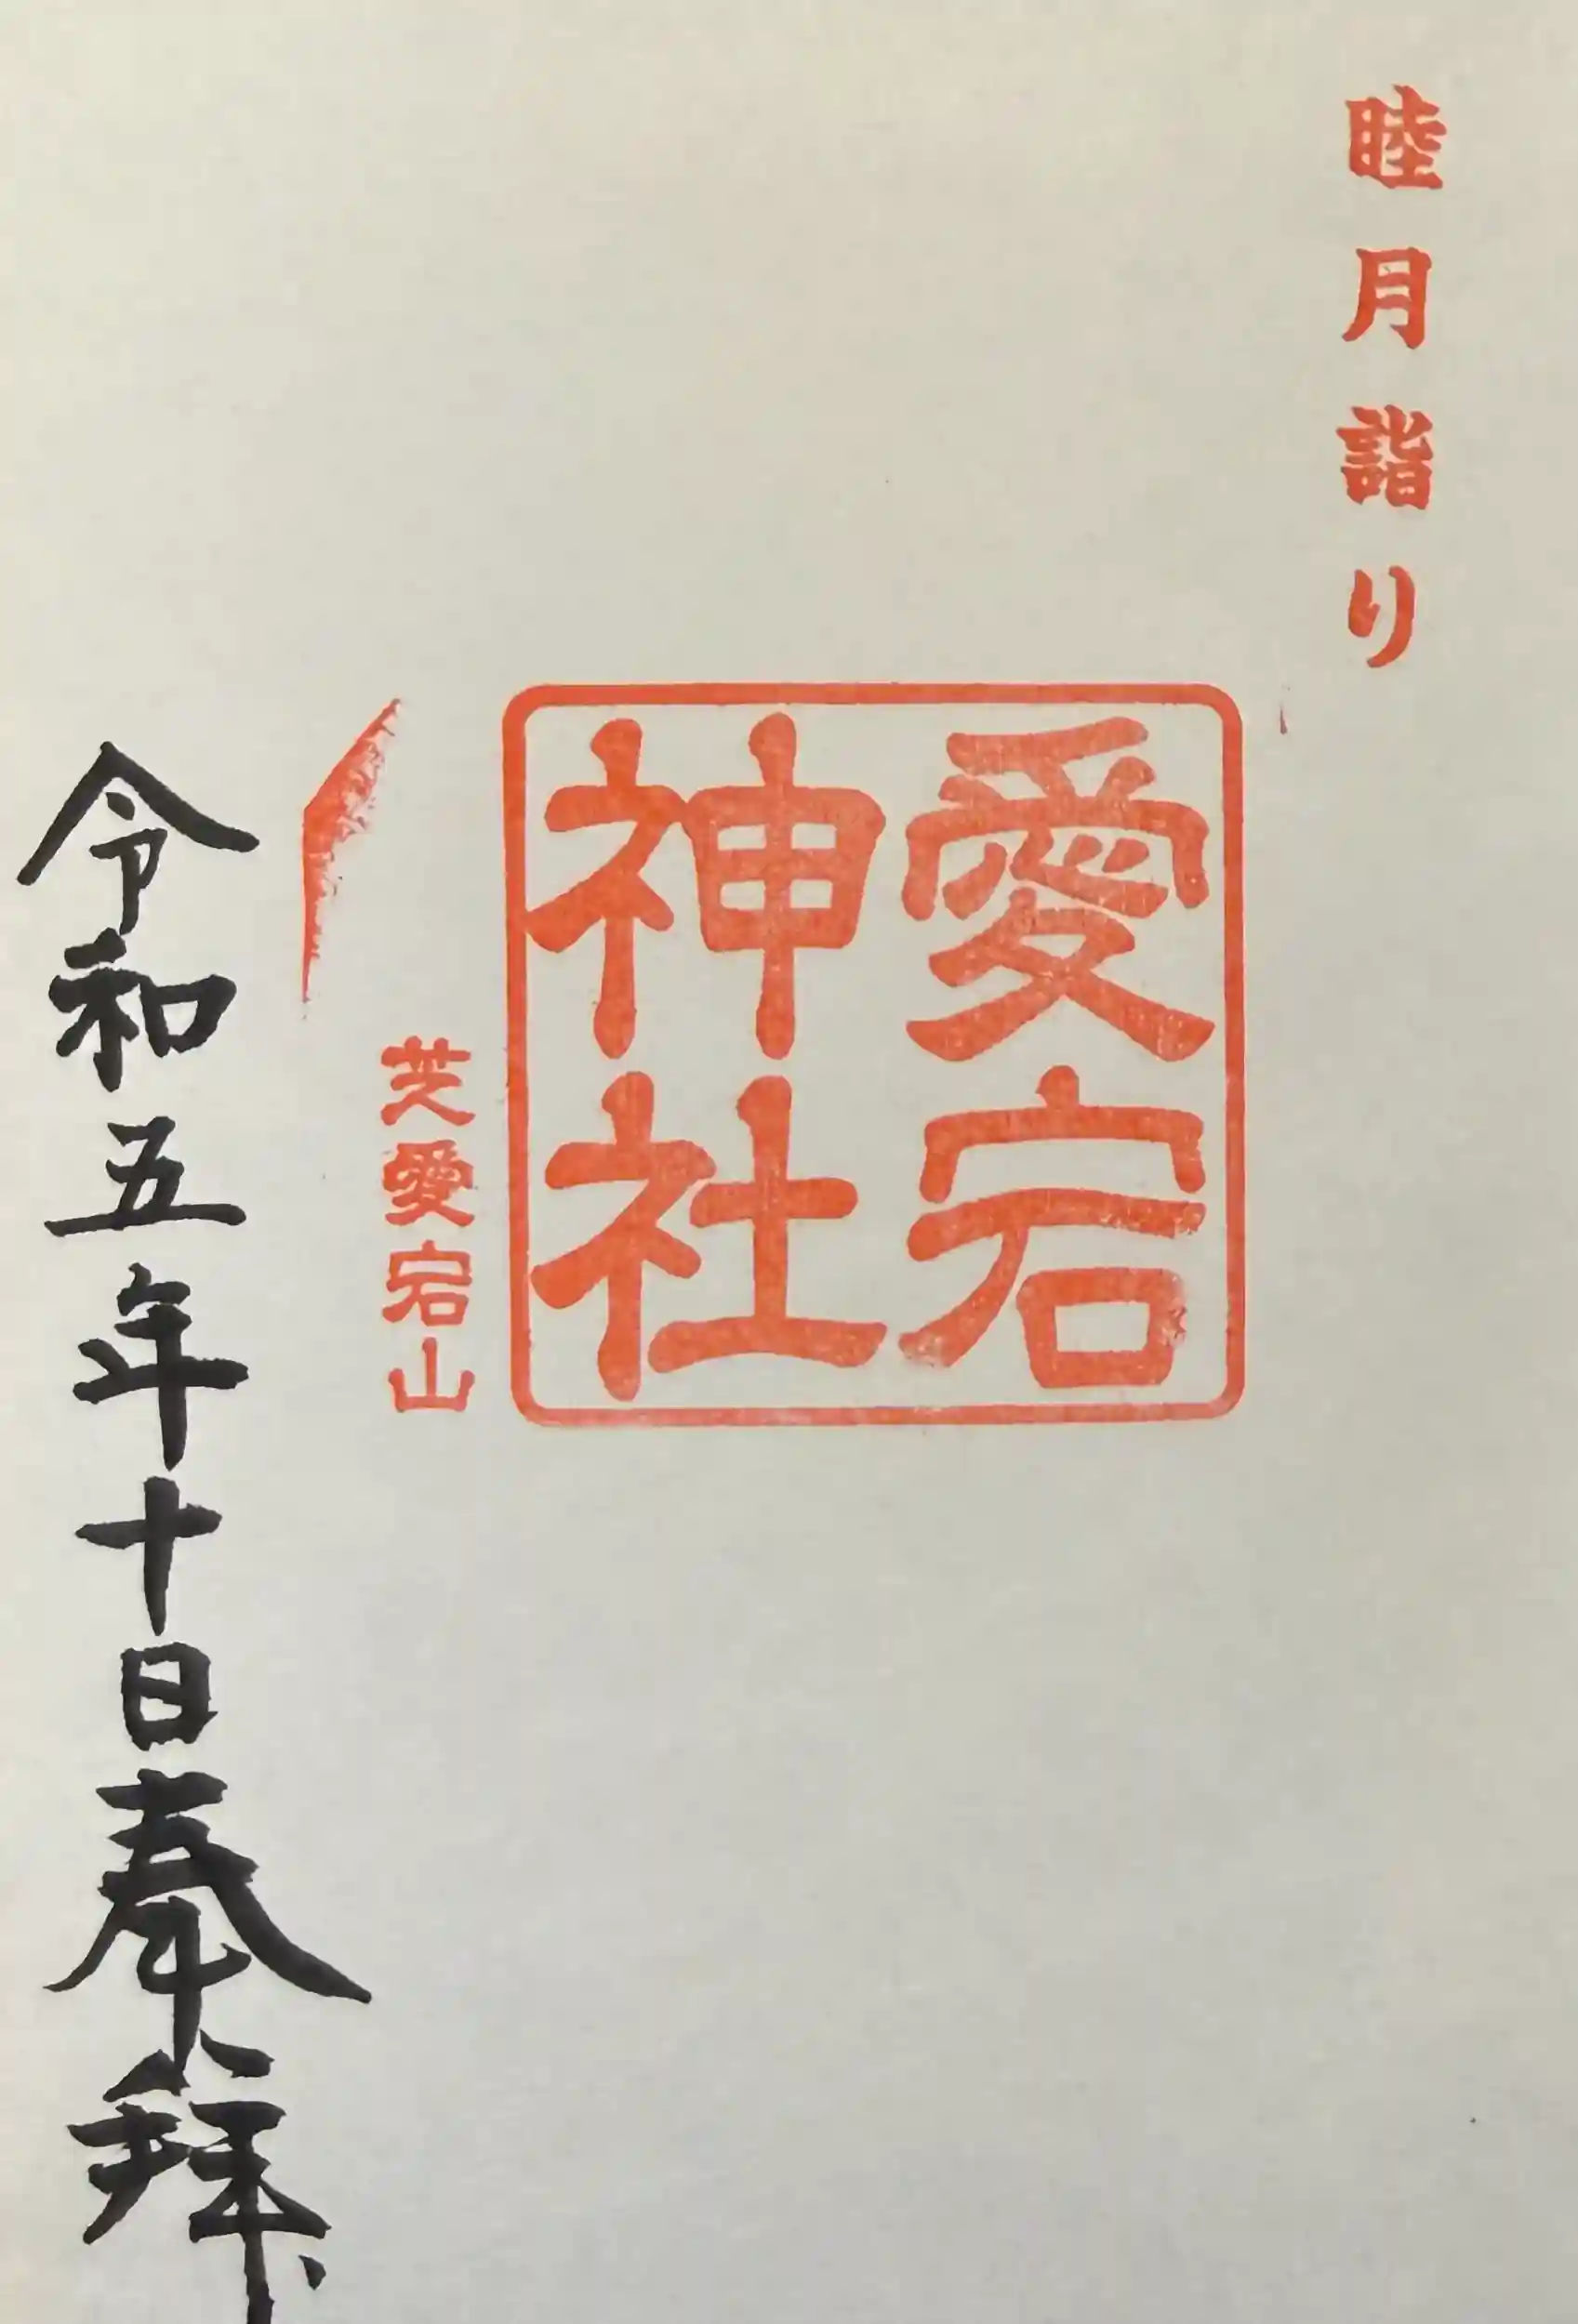 睦月詣り
愛宕
神社
芝愛宕山
令和五年十日奉拝